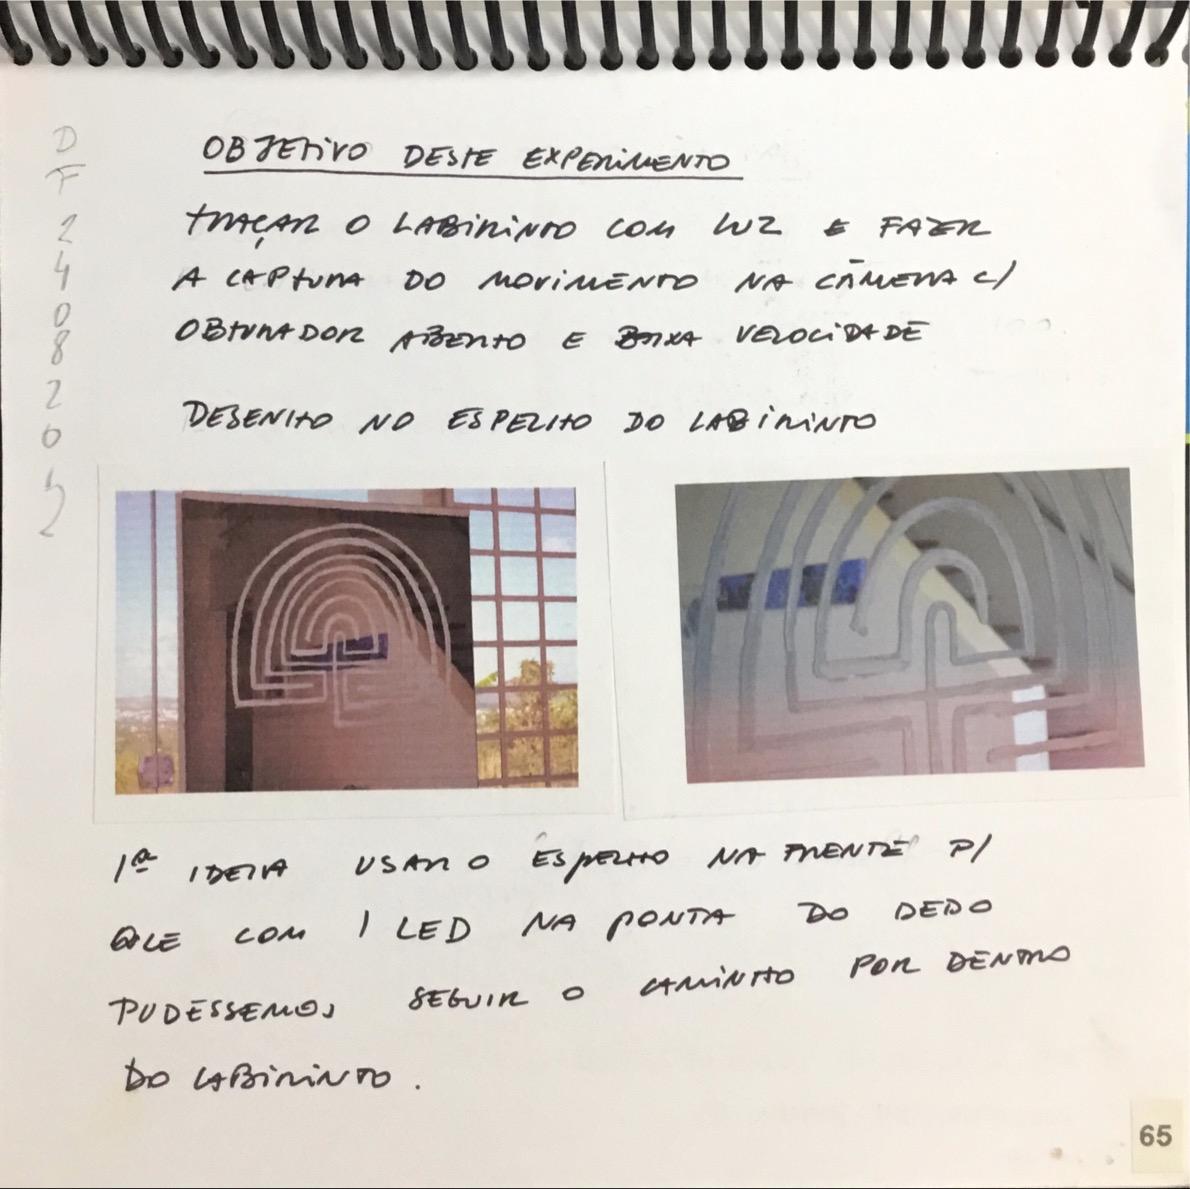 OBJETIVO DESTE EXPERIMENTO
TRAÇAR O LABIRINTO COM LUZ E FAZER
A CAPTURA DO MOVIMENTO NA CÂMERA C/
OBTURADOR ABERTO E BAIXA VELOCIDADE
DESENHO NO ESPELHO DO LABIRINTO
1ª IDEIA USAR O ESPELHO NA FRENTE P/
QUE COM 1 LED NA PONTA DO DEDO
PUDESSEMOS SEGUIR O CAMINHO POR DENTRO
DO LABIRINTO.
65
D
F
2
4
0
8
2
0